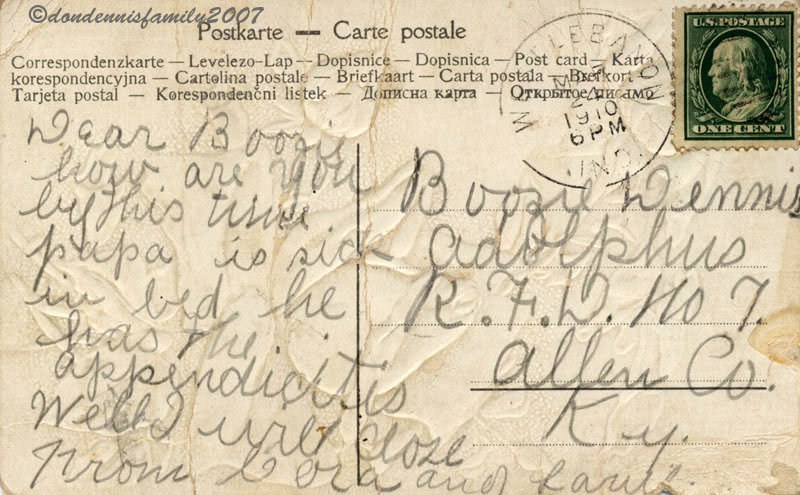 ©dondennisfamily2007
Postkarte — Carte postale
Correspondenzkarte — Levelezo-Lap — Dopisnice — Dopisnica — Post card — Karta
korespondencyjna — Cartolina postale — Briefkaart — Carta postala — Brefkort —
Tarjeta postal — Korespondenčni listek — Дописна карта — Открытое письмо
LEBANON
24
1910
6 PM
IND.
U.S. POSTAGE
ONE CENT
Dear Boozie
how are you
by this time
papa is sick
in bed he
has the
appendicitis
Well I will close
From Cora and
Boozie Dennis
Adolphus
R.F.D. No 7.
Allen Co.
Ky.